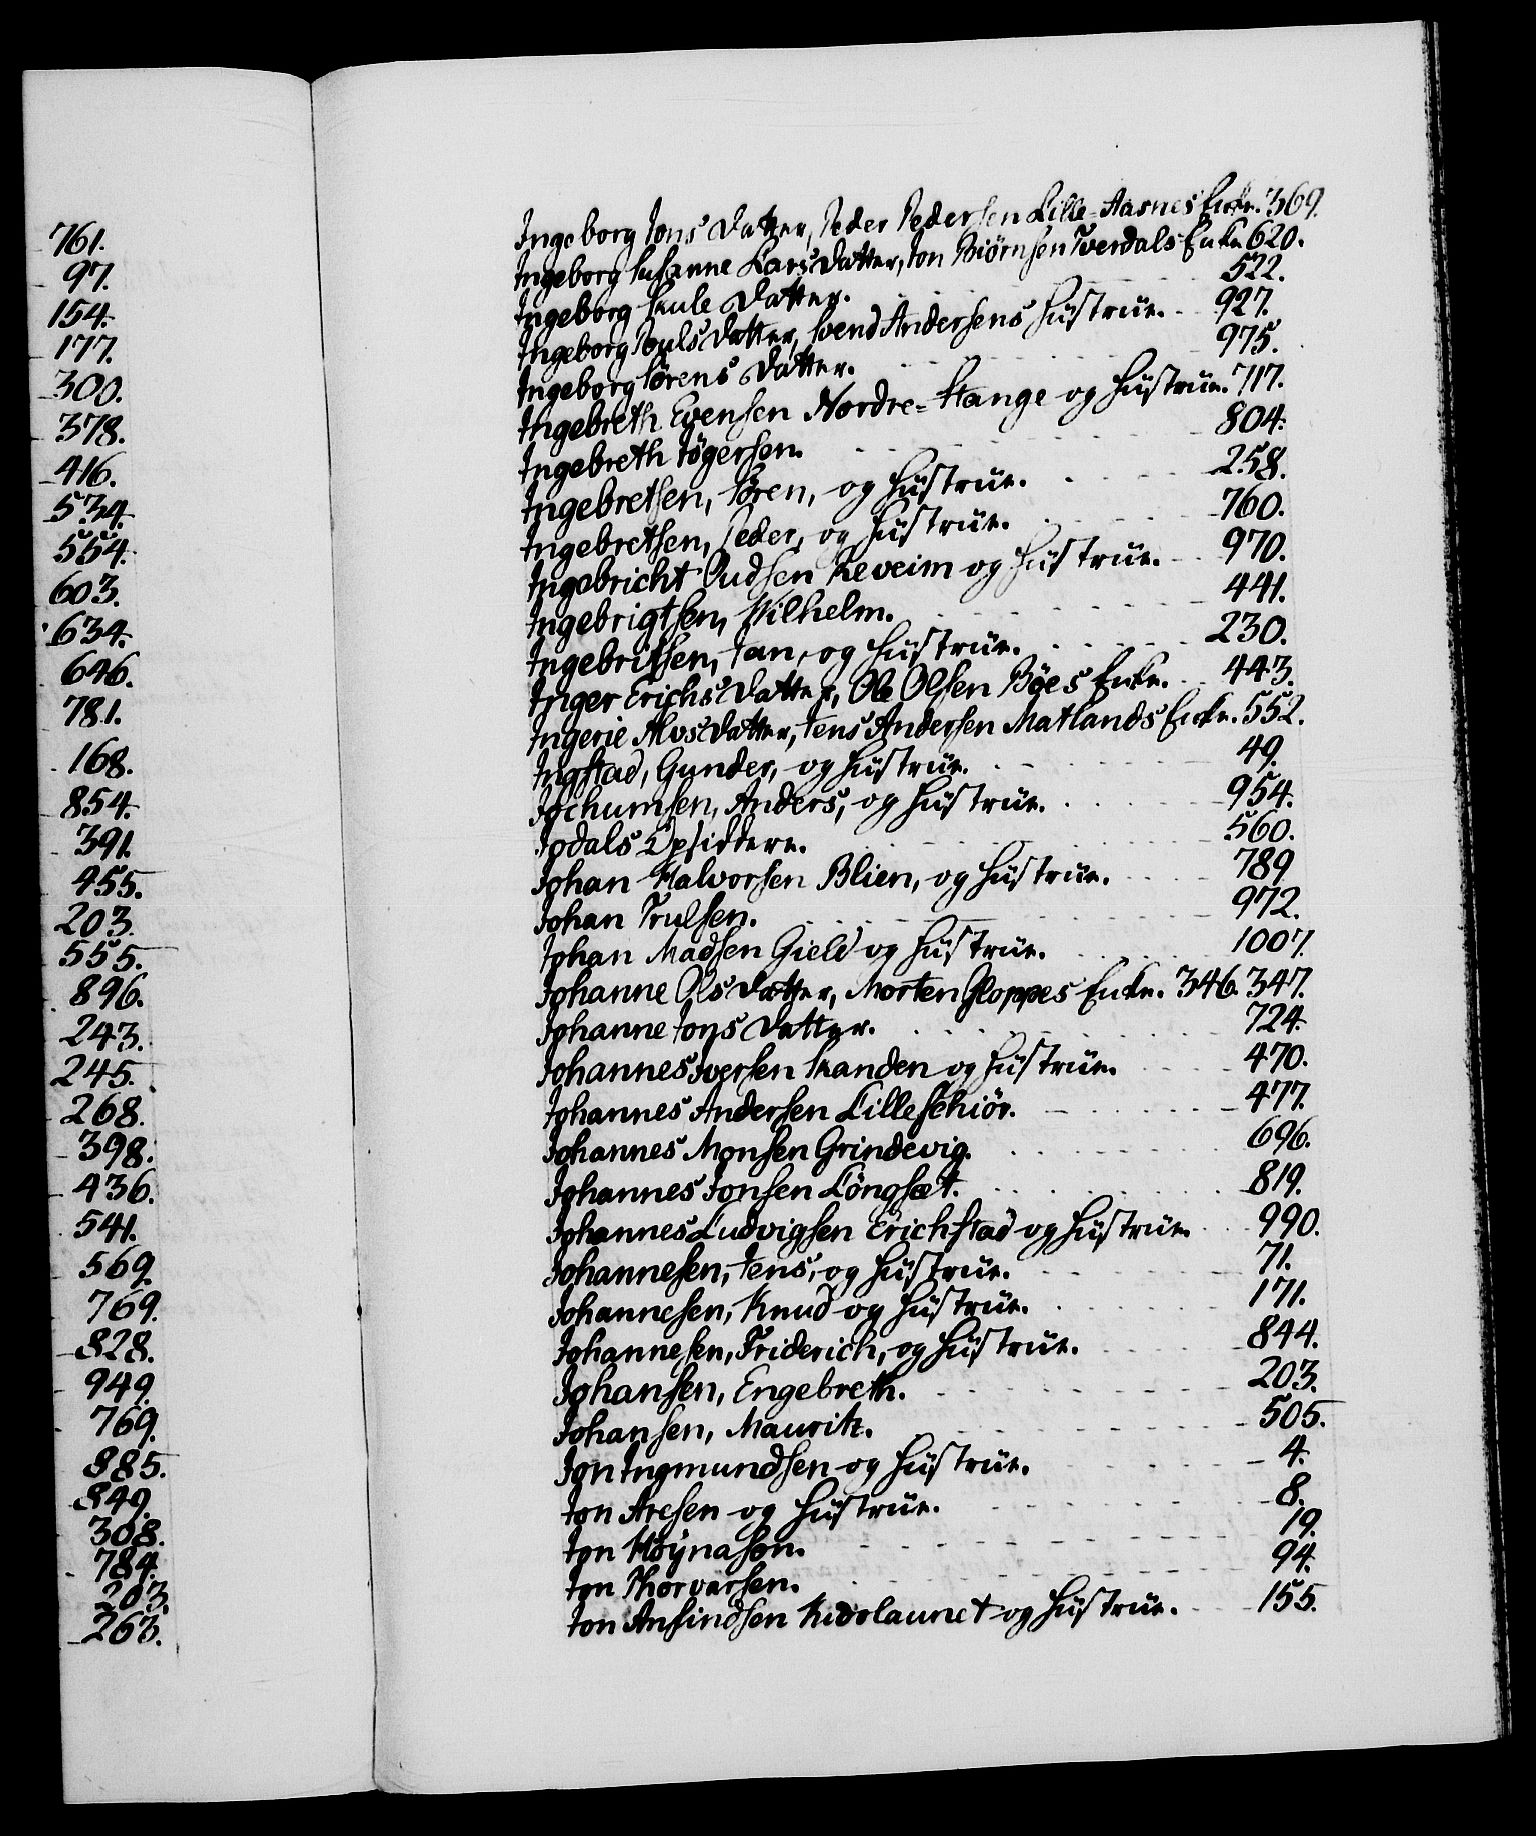 761.
97.
154.
177.
300.
378.
416.
534.
554.
603.
634.
646.
781.
168.
854.
391.
455.
203.
555.
896.
243.
245.
268.
398.
436.
541.
569.
769.
828.
949.
769.
885.
849.
308.
784.
203.
263.
Ingeborg Jons datter, Peder Pedersen Lille-Aasnes Enke. 369.
Ingeborg Susanne Lars datter, Jon Biørnsen Tverdals Enke 620.
Ingeborg Skule datter. 522.
Ingeborg Pouls datter, Svend Andersens Hustrue. 927.
Ingeborg Sørens datter. 975.
Ingebreth Evensen Nordre-Stange og Hustrue. 717.
Ingebreth Jögersen. 804.
Ingebretsen, Sören, og Hustrue. 258.
Ingebretsen, Peder, og Hustrue. 760.
Ingebricht Oudsen Reveim og Hustrue. 970.
Ingebrigtsen, Wilhelm. 441.
Ingebritsen, Jan, og Hustrue. 230.
Inger Erichs datter, Ole Olsen Böes Enke. 443.
Ingerie Alvs datter, Jens Andersen Matlands Enke. 552.
Ingstad, Gunder, og Hustrue. 49.
Jochumsen, Anders, og Hustrue. 954.
Jodals Opsiddere. 560.
Johan Halvorsen Blien, og Hustrue. 789
Johan Trulsen. 972.
Johan Madsen Gield og Hustrue. 1007.
Johanne Ols datter, Morten Gloppes Enke. 346. 347.
Johanne Jons datter. 724.
Johannes Iversen Skanden og Hustrue. 470.
Johannes Andersen Lilleschiör. 477.
Johannes Monsen Grindevig. 696.
Johannes Jonsen Löngsæt. 819.
Johannes Ludvigsen Erichstad og Hustrue 990.
Johannesen, Jens, og Hustrue. 71.
Johannesen, Knud og Hustrue. 171.
Johannesen, Friderich, og Hustrue. 844.
Johansen, Engebreth. 203.
Johansen, Mauritz. 505.
Jon Ingmundsen og Hustrue. 4.
Jon Aresen og Hustrue. 8.
Jon Höynason. 19.
Jon Thorvarsen. 94.
Jon Anfindsen Kidolaunet og Hustrue. 155.